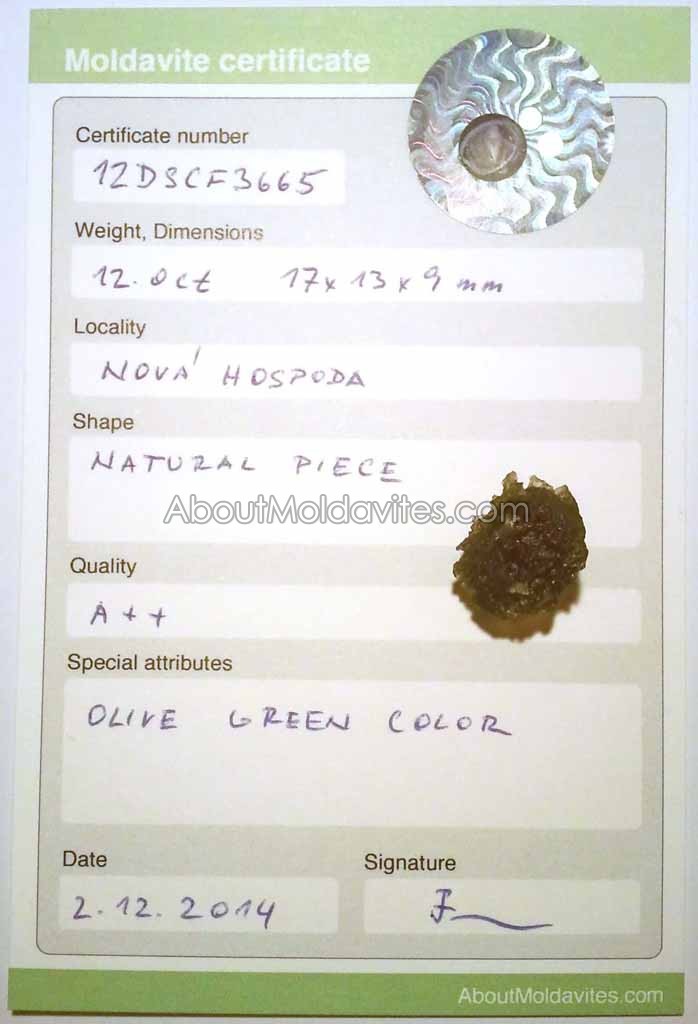 Moldavite certificate
Certificate number
12DSCF3665
Weight, Dimensions
12.0ct 17x13x9mm
Locality
NOVÁ HOSPODA
Shape
NATURAL PIECE
AboutMoldavites.com
Quality
A++
Special attributes
OLIVE GREEN COLOR
Date
2.12.2014
Signature
AboutMoldavites.com